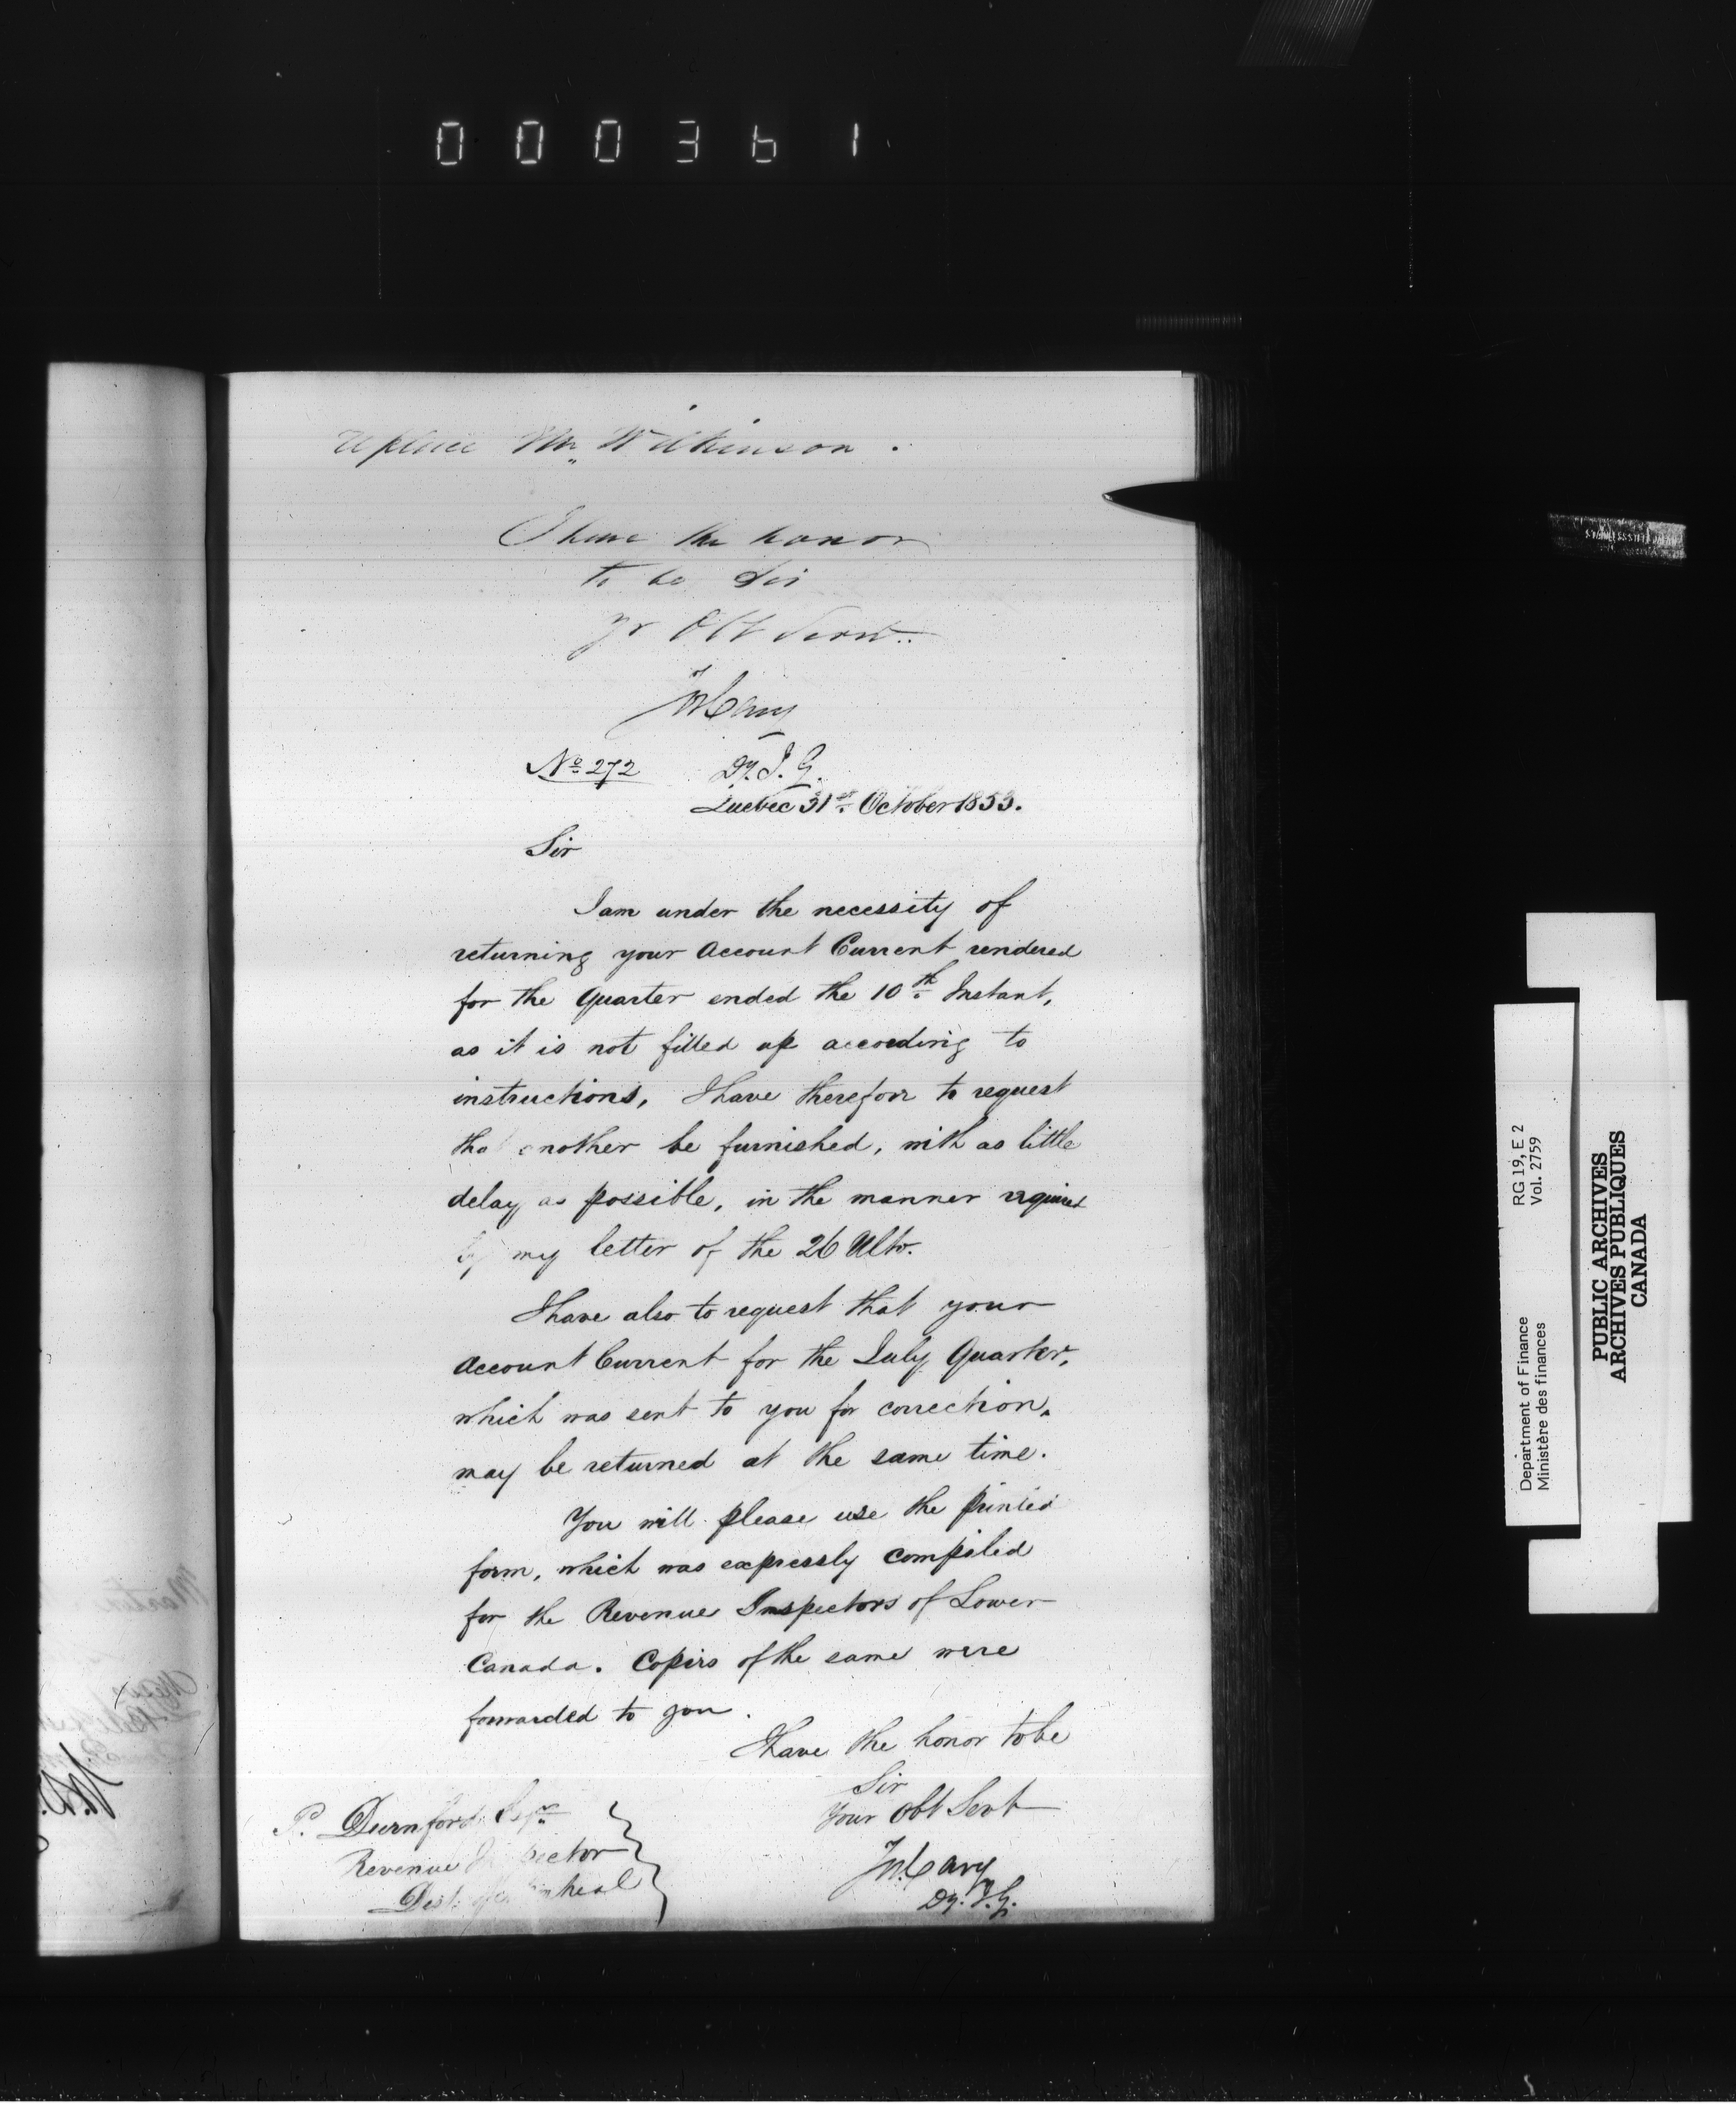 000361
replace Mr. Wilkinson.
I have the honor
to be Sir
Yr Obt Servt.
Jos Cary
Dy. I. G.
No. 272
Quebec 31st October 1853.
Sir
I am under the necessity of
returning your Account Current rendered
for the Quarter ended the 10th Instant,
as it is not filled up according to
instructions, I have therefore to request
that another be furnished, with as little
delay as possible, in the manner required
by my letter of the 26 Ulto.
I have also to request that your
Account Current for the July Quarter,
which was sent to you for correction,
may be returned at the same time.
You will please use the printed
form, which was expressly compiled
for the Revenue Inspectors of Lower
Canada. Copies of the same were
forwarded to you.
I have the honor to be
Sir
Your Obt Servt
Jos Cary
Dy. I. G.
P. Durnford Esqr
Revenue Inspector
Dist. of Montreal
STAINLESS STEEL
RG 19, E 2
Vol. 2759
Department of Finance
Ministère des finances
PUBLIC ARCHIVES
ARCHIVES PUBLIQUES
CANADA